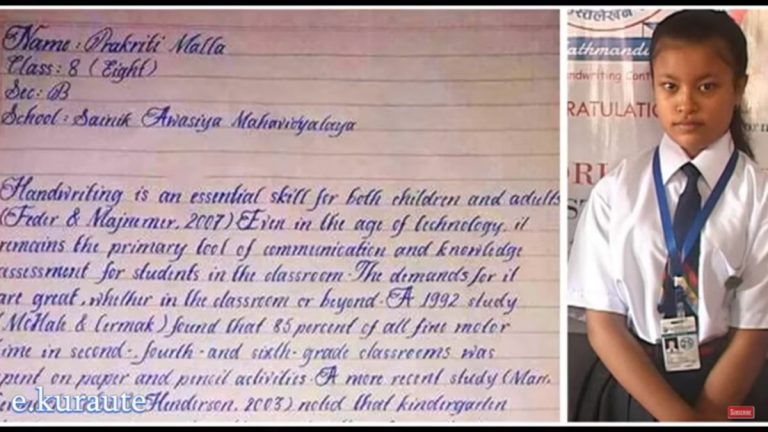 Name : Prakriti Malla
Class : 8 (Eight)
Sec : B
School : Sainik Awasiya Mahavidyalaya
Handwriting is an essential skill for both children and adults
(Feder & Majnemer, 2007) Even in the age of technology, it
remains the primary tool of communication and knowledge
assessment for students in the classroom. The demands for it
are great, whether in the classroom or beyond. A 1992 study
(McHale & Cermak) found that 85 percent of all fine motor
time in second-, fourth- and sixth-grade classrooms was
spent on paper and pencil activities. A more recent study (Marr,
Henderson, 2003) noted that kindergarten
e.kuraute
athmandu
andwriting Cont
RATULATI
SUBSCRIBE